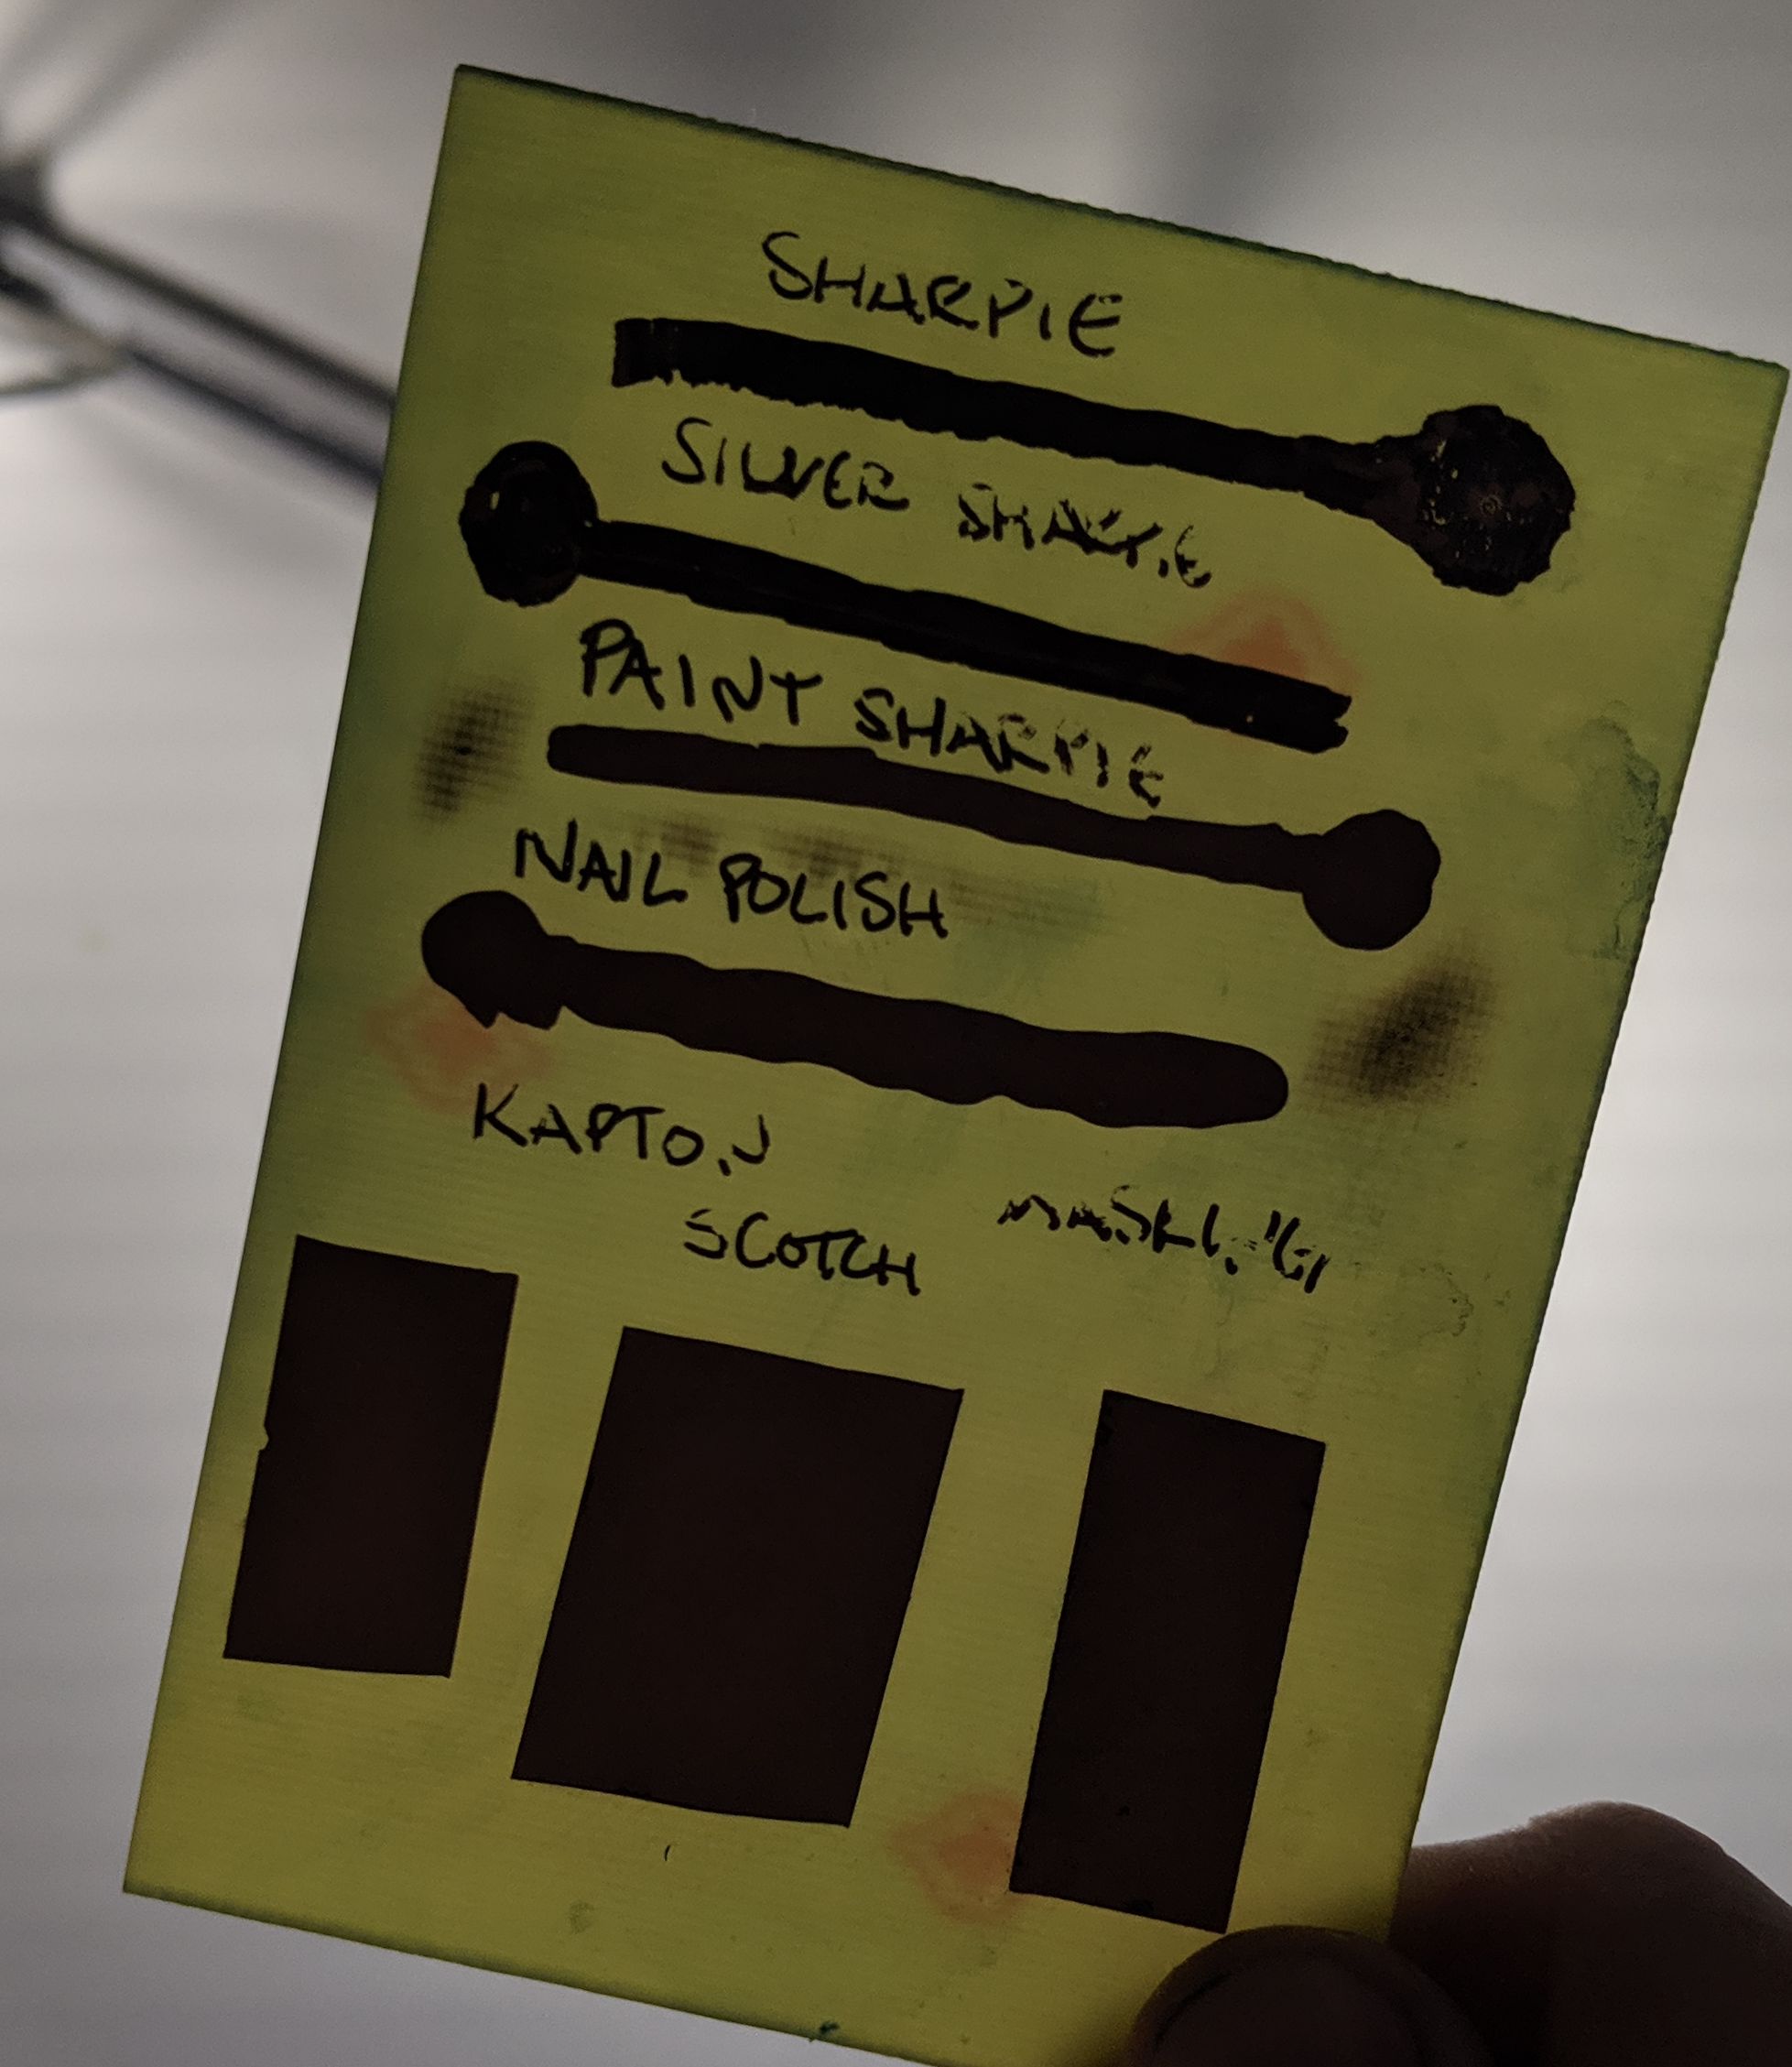 SHARPIE
SILVER SHARPIE
PAINT SHARPIE
NAIL POLISH
KAPTON
SCOTCH
MASKING